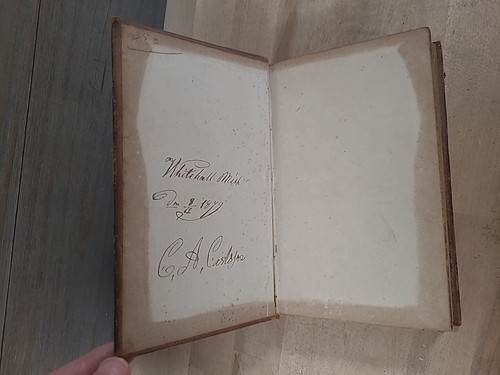 Whitehall Mich
Dm 8/4 1879
C, A, Carlson